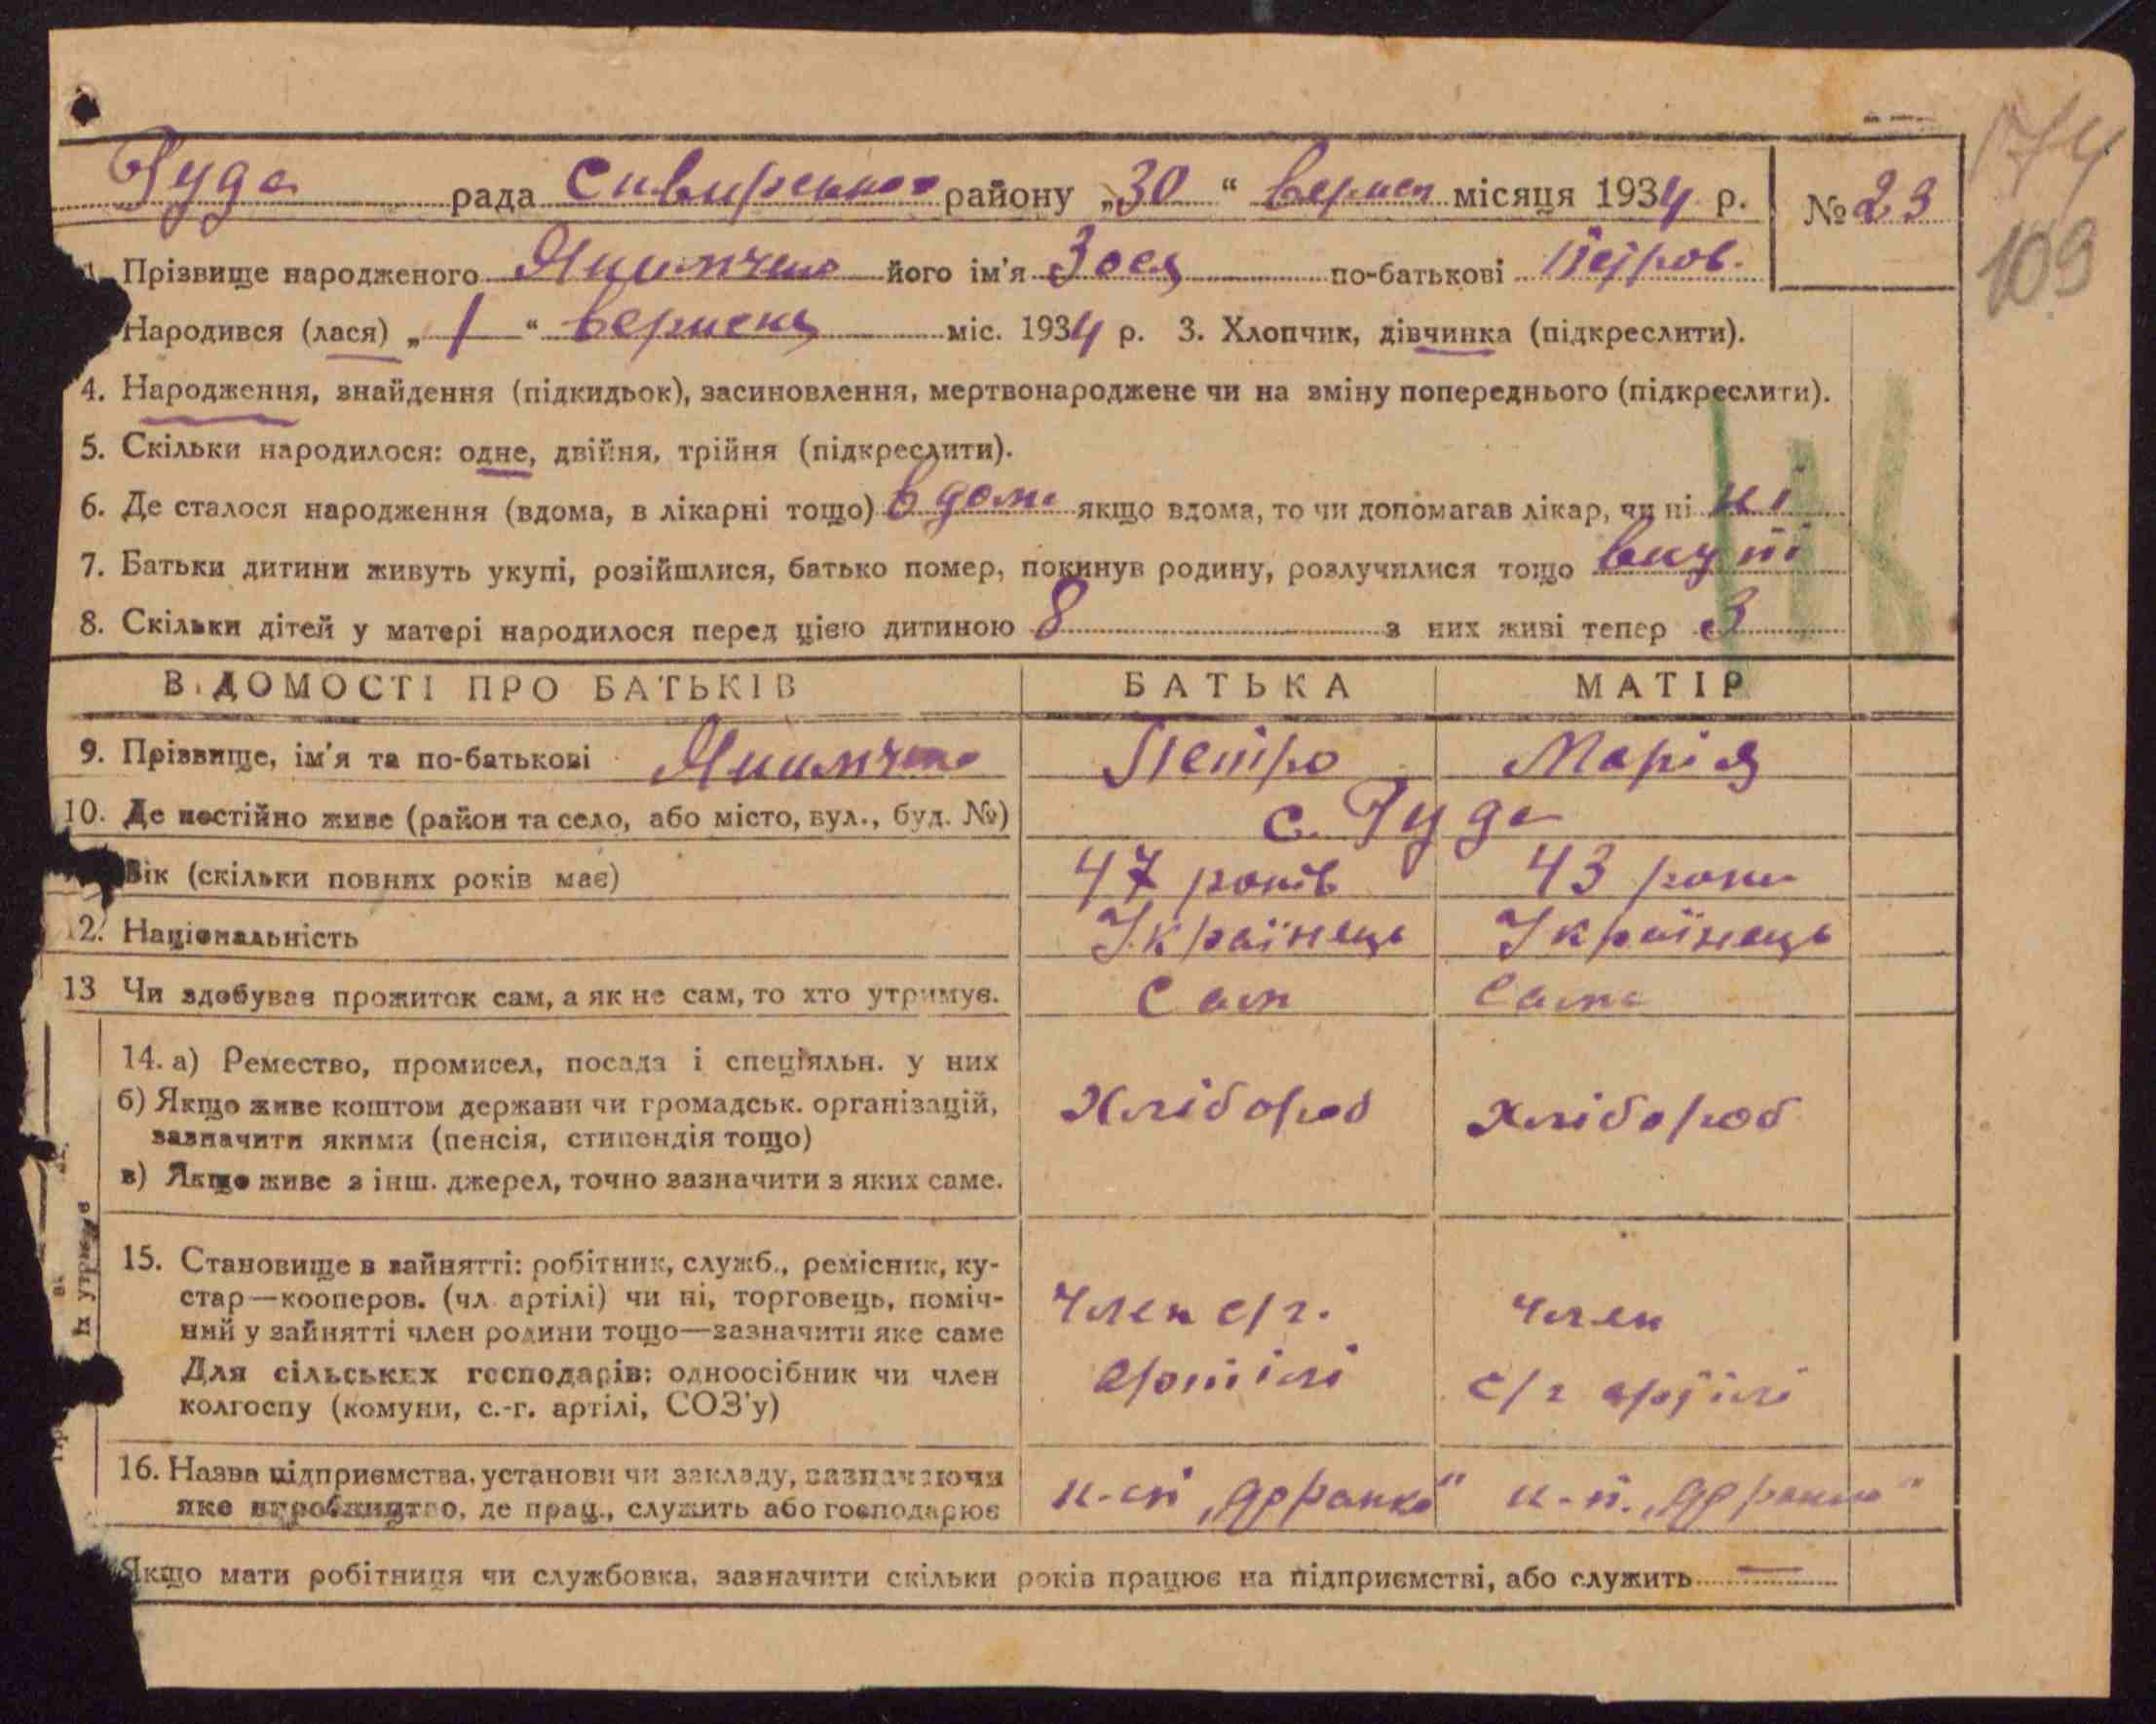 174
Руда рада Сквирсько району „30“ верысн місяця 1934 р. № 23
109
Прізвище народженого Якимчено його ім'я Зоея по-батькові Петров.
Народився (лася) „1“ вересень міс. 1934 р. 3. Хлопчик, дівчинка (підкреслити).
4. Народження, знайдення (підкидьок), засиновлення, мертвонароджене чи на зміну попереднього (підкреслити).
5. Скільки народилося: одне, двійня, трійня (підкреслити).
6. Де сталося народження (вдома, в лікарні тощо) вдома якщо вдома, то чи допомагав лікар, чи ні ні
7. Батьки дитини живуть укупі, розійшлися, батько помер, покинув родину, розлучилися тощо вкупі
8. Скільки дітей у матері народилося перед цією дитиною 8 з них живі тепер 3
ВІДОМОСТІ ПРО БАТЬКІВ БАТЬКА МАТІР
9. Прізвище, ім'я та по-батькові Якимчено Петро Марія
10. Де постійно живе (район та село, або місто, вул., буд. №) с. Руда
Вік (скільки повних років має) 47 років 43 роки
12. Національність Українець Українець
13 Чи здобуває прожиток сам, а як не сам, то хто утримує. Сам Сама
14. а) Ремество, промисел, посада і спеціяльн. у них
б) Якщо живе коштом держави чи громадськ. організацій, Хлібороб Хлібороб
зазначити якими (пенсія, стипендія тощо)
в) Якщо живе з інш. джерел, точно зазначити з яких саме.
15. Становище в зайнятті: робітник, служб., ремісник, ку-
стар—кооперов. (чл. артілі) чи ні, торговець, поміч- Член с/г. член
ний у зайнятті член родини тощо—зазначити яке саме
Для сільських господарів: одноосібник чи член артілі с/г артілі
колгоспу (комуни, с.-г. артілі, СОЗ'у)
16. Назва підприємства, установи чи закладу, зазначаючи
яке виробництво, де прац., служить або господарює
Якщо мати робітниця чи службовка, зазначити скільки років працює на підприємстві, або служить —